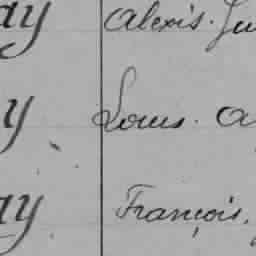 ay Alexis. Ju
y Louis. A
ay François.